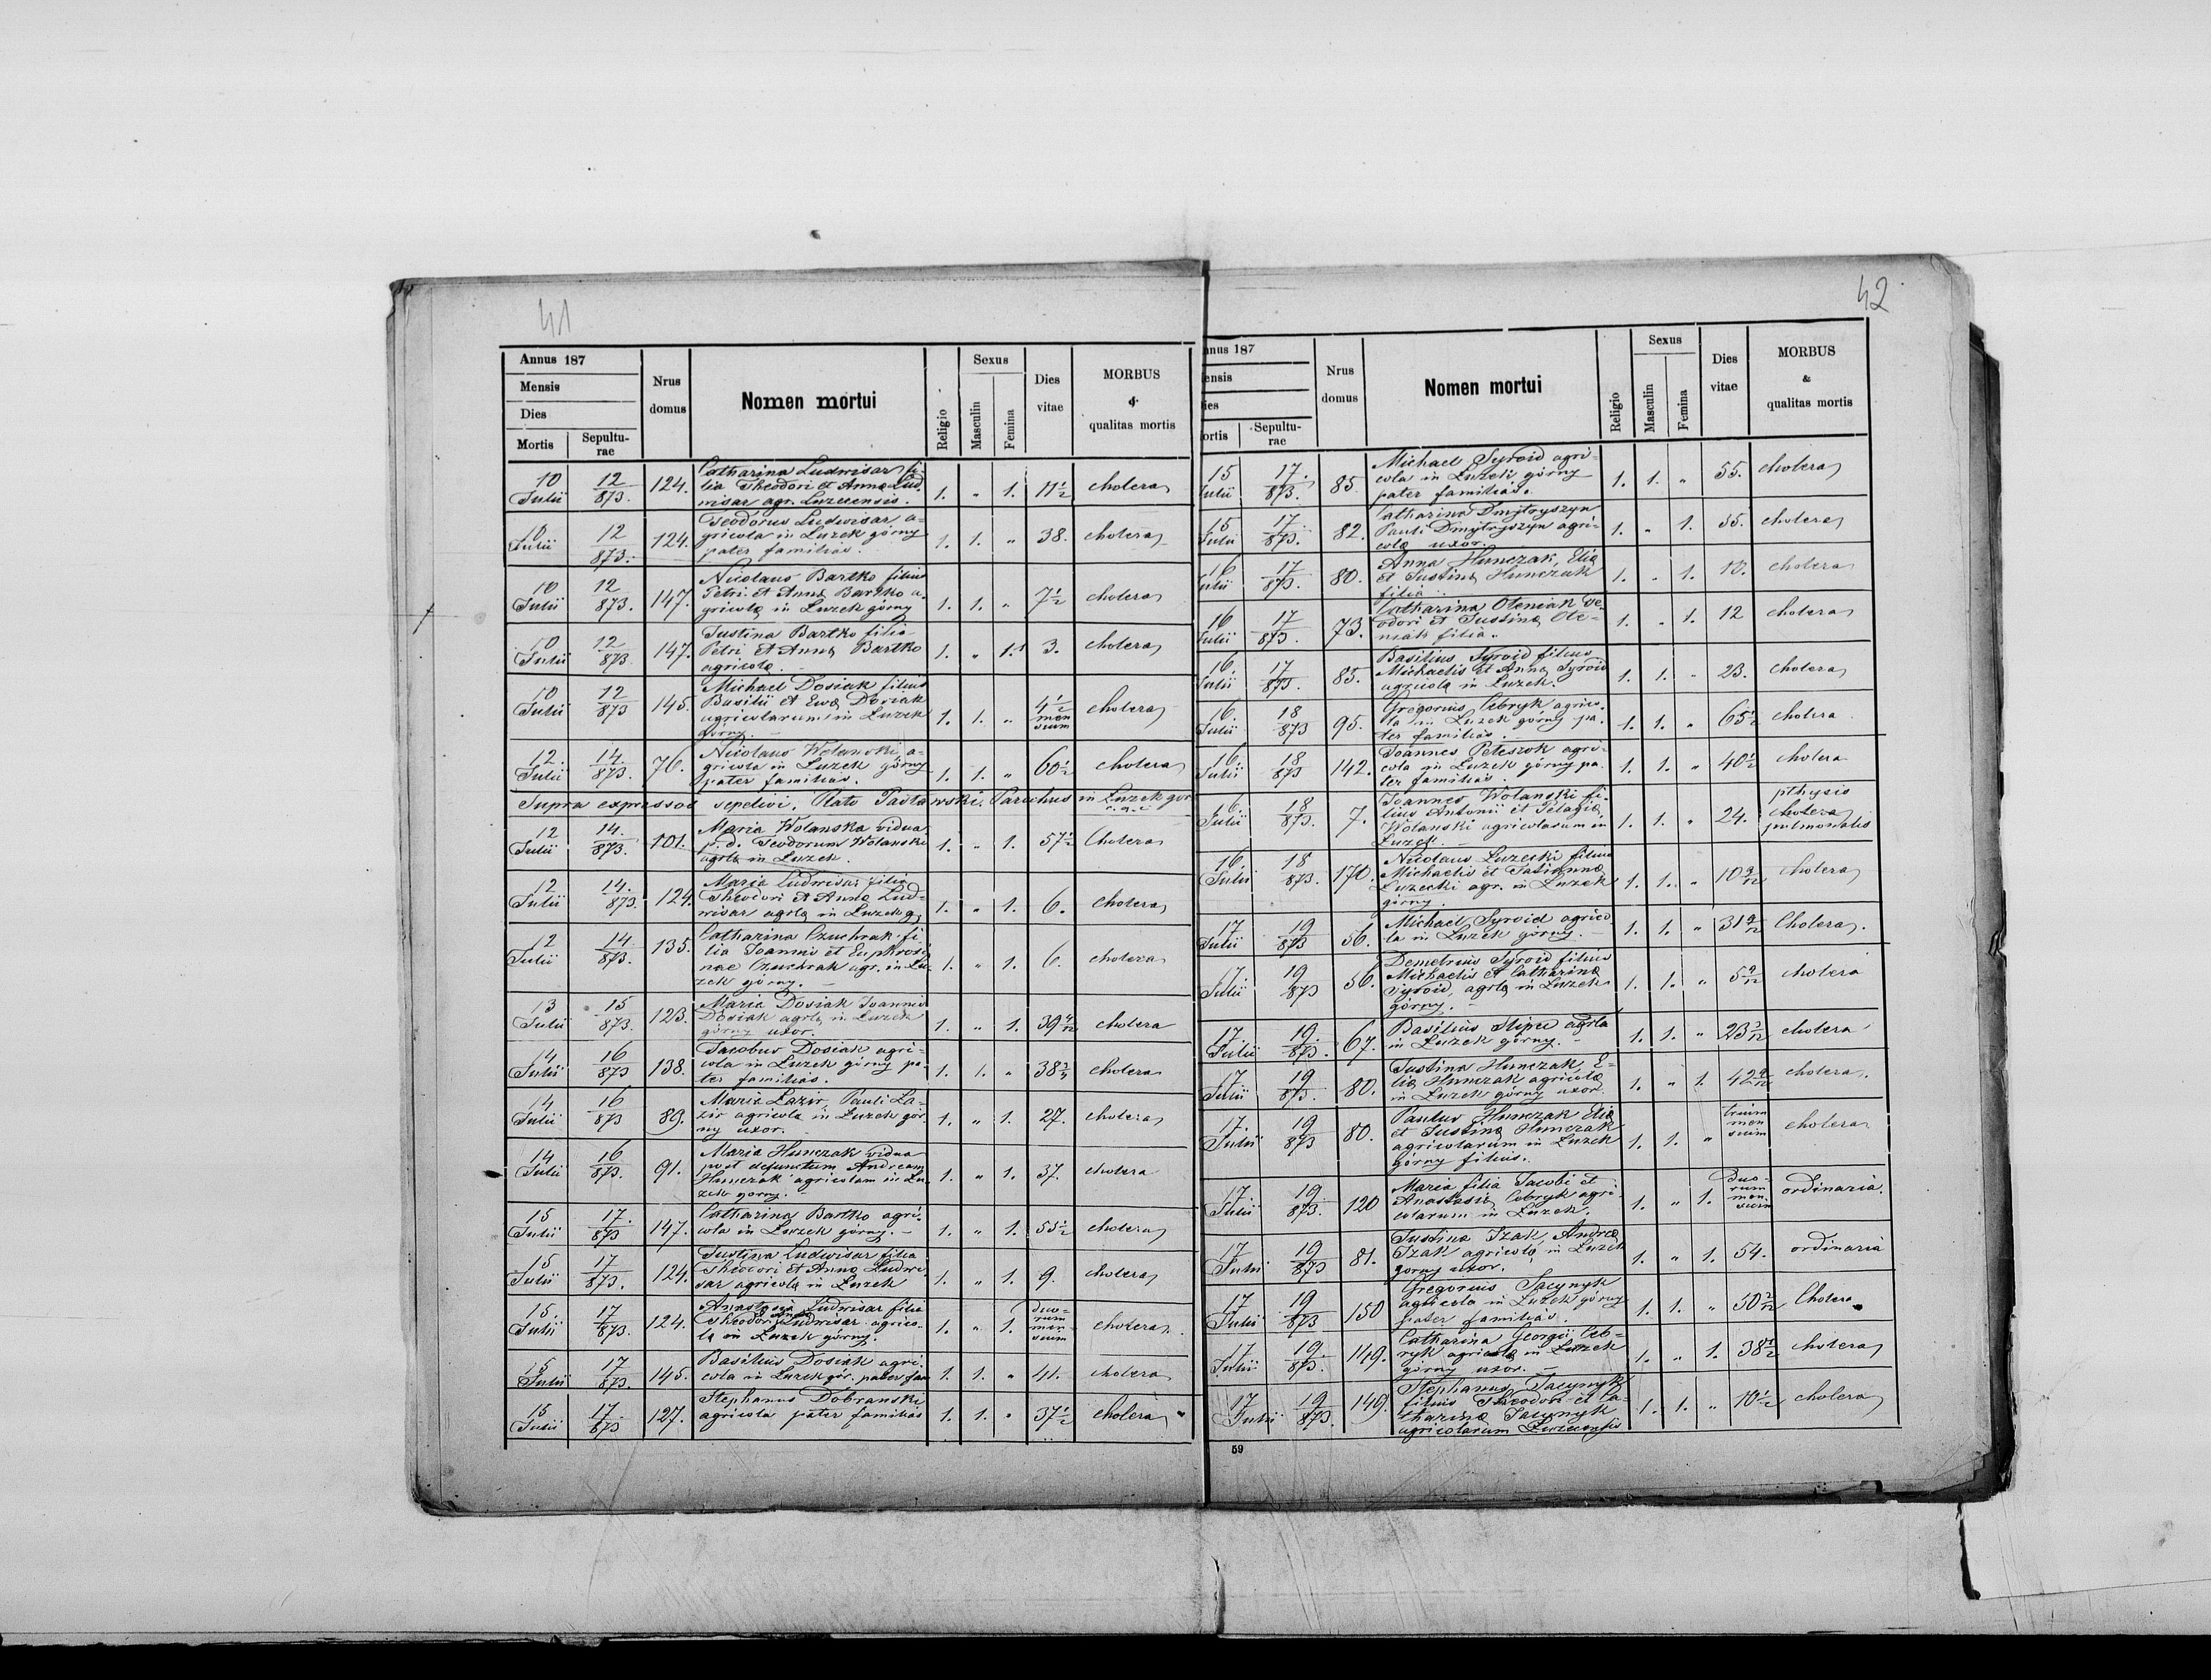 41
Annus 187
Mensis
Dies
Mortis
Sepultu-
rae
Nrus
domus
Nomen mortui
Religio
Sexus
Masculin
Femina
Dies
vitae
MORBUS
&
qualitas mortis
10 Julii 12/873. 124. Catharina Ludwisar fi-
lia Theodori et Anna Lud-
wisar agr. Luzecensis. 1. " 1. 11 1/2 cholera
10 Julii 12/873. 124. Teodorus Ludwisar a-
gricola in Luzek górny
pater familias. 1. 1. " 38. cholera
10 Julii 12/873. 147. Nicolaus Bartko filius
Petri et Anna Bartko a-
gricola in Luzek górny 1. 1. " 7 1/2 cholera
10 Julii 12/873 147. Justina Bartko filia
Petri et Anna Bartko
agricola. 1. " 1. 3. cholera
10 Julii 12/873 145. Michael Dosiak filius
Basilii et Ewa Dosiak
agricolarum in Luzek
górny. 1. 1. " 4 1/2
men
sium cholera
12. Julii 14./873. 76. Nicolaus Wolanski a-
gricola in Luzek górny
pater familias. 1. 1. " 60 1/2 cholera
Supra expressos sepelivi, Parochus in Luzek gór
12 Julii 14./873. 101. Maria Wolanska vidua
p. d. Teodorum Wolanski
agrla in Luzek. 1. " 1. 57 1/2 Cholera
12 Julii 14./873. 124. Maria Ludwisar filia
Theodori et Anna Lud-
wisar agrla in Luzek g. 1. " 1. 6. cholera
12 Julii 14./873. 135. Catharina Czuchrak fi-
lia Joannis et Euphrosi
nae Czuchrak agr. in Lu-
zek górny. 1. " 1. 6. cholera
13 Julii 15/873. 123. Maria Dosiak Joannis
Dosiak agrla in Luzek
górny uxor. 1. " 1. 39 4/12 cholera
14 Julii 16/873 138. Jacobus Dosiak agri-
cola in Luzek górny pa-
ter familias. 1. 1. " 38 3/4 cholera
14 Julii 16/873 89. Maria Lazir Pauli La-
zir agricola in Luzek gór
ny uxor. 1. " 1. 27. cholera
14 Julii 16/873. 91. Maria Hunczak vidua
post defunctum Andream
Hunczak agricolam in Lu-
zek górny. 1. " 1. 37. cholera
15 Julii 17./873 147. Catharina Bartko agri-
cola in Luzek górny. 1. " 1. 55 1/2 cholera
15 Julii 17/873. 124. Justina Ludwisar filia
Theodori et Anna Ludwi-
sar agricola in Luzek 1. " 1. 9. cholera
15. Julii 17/873. 124. Anastasia Ludwisar filia
Theodori et Anna Ludwisar agrico-
la in Luzek górny. 1. " 1. duo-
rum
men
sium cholera
15 Julii 17/873. 145. Basilius Dosiak agri-
cola in Luzek gór. pater fam 1. 1. " 41. cholera
15 Julii 17./873 127. Stephanus Dobranski
agricola pater familias 1. 1. " 37 1/2 cholera
42
nnus 187
ensis
ies
ortis
Sepultu-
rae
Nrus
domus
Nomen mortui
Religio
Sexus
Masculin
Femina
Dies
vitae
MORBUS
&
qualitas mortis
15 Julii 17./873. 85. Michael Syroid agri-
cola in Luzek górny
pater familias. 1. 1. " 55. cholera
15 Julii 17./873. 82. Catharina Dmytryszyn
Pauli Dmytryszyn agri-
cola uxor. 1. " 1. 35. cholera
16 Julii 17/873. 80. Anna Hunczak, Elia
et Justina Hunczak
filia 1. " 1. 10. cholera
16 Julii 17/873. 73. Catharina Oleniak
odori et Justina Ole-
niak filia. 1. " 1. 12 cholera
16. Julii 17/873. 85. Basilius Syroid filius
Michaelis et Anna Syroid
agricola in Luzek. 1. 1. " 23. cholera
16. Julii 18/873 95. Gregorius Cebryk agrico-
la in Luzek górny pa-
ter familias. 1. 1. " 65 1/2 cholera
16. Julii 18/873 142. Joannes agri-
cola in Luzek górny pa-
ter familias. 1. 1. " 40 1/2 cholera
16. Julii 18/873. 7. Joannes Wolanski fi-
lius Antonii et Pelagia
Wolanski agricolarum in
Luzek. 1. 1. " 24. pthysis
cholera
pulmonalis
16 Julii 18/873. 170. Nicolaus Luzecki filius
Michaelis et Tatianna
Luzecki agr. in Luzek
górny. 1. 1. " 10 9/12 cholera
17 Julii 19/873 56. Michael Syroid agrico
la in Luzek górny. 1. 1. " 31 9/12 Cholera.
17 Julii 19/873 56. Demetrius Syroid filius
Michaelis et Catharina
Syroid, agrla in Luzek
górny. 1. 1. " 5 9/12 cholera
17 Julii 19./873. 67. Basilius agrla
in Luzek górny. 1. 1. " 23 3/12 cholera
17 Julii 19/873. 80. Justina Hunczak, E-
lia Hunczak agricola
in Luzek górny uxor. 1. " 1. 42 9/12 cholera.
17. Julii 19/873 80. Paulus Hunczak Elia
et Justina Hunczak
agricolarum in Luzek
górny filius. 1. 1. " trium
men
sium cholera
17. Julii 19/873. 120 Maria filia Jacobi et
Anastasia Cebryk agri
colarum in Luzek. 1. " 1. Duo-
rum
men-
sium ordinaria.
17 Julii 19/873 81. Justina Izak, Andrea
Izak agricola in Luzek
gorny uxor. 1. " 1. 54. ordinaria
17 Julii 19/873 150 Gregorius Jacynyk
agricola in Luzek górny
pater familias. 1. 1. " 50 2/12 Cholera
17. Julii 19./873. 149. Catharina Georgii Ceb-
ryk agricola in Luzek
górny uxor. 1. " 1. 38 1/2 cholera
17 Julii 19/873. 149. Stephanus Jacynyk
filius Theodori et Ca-
tharina Jacynyk
agricolarum Luzecensis 1. 1. " 10 1/2 cholera
59